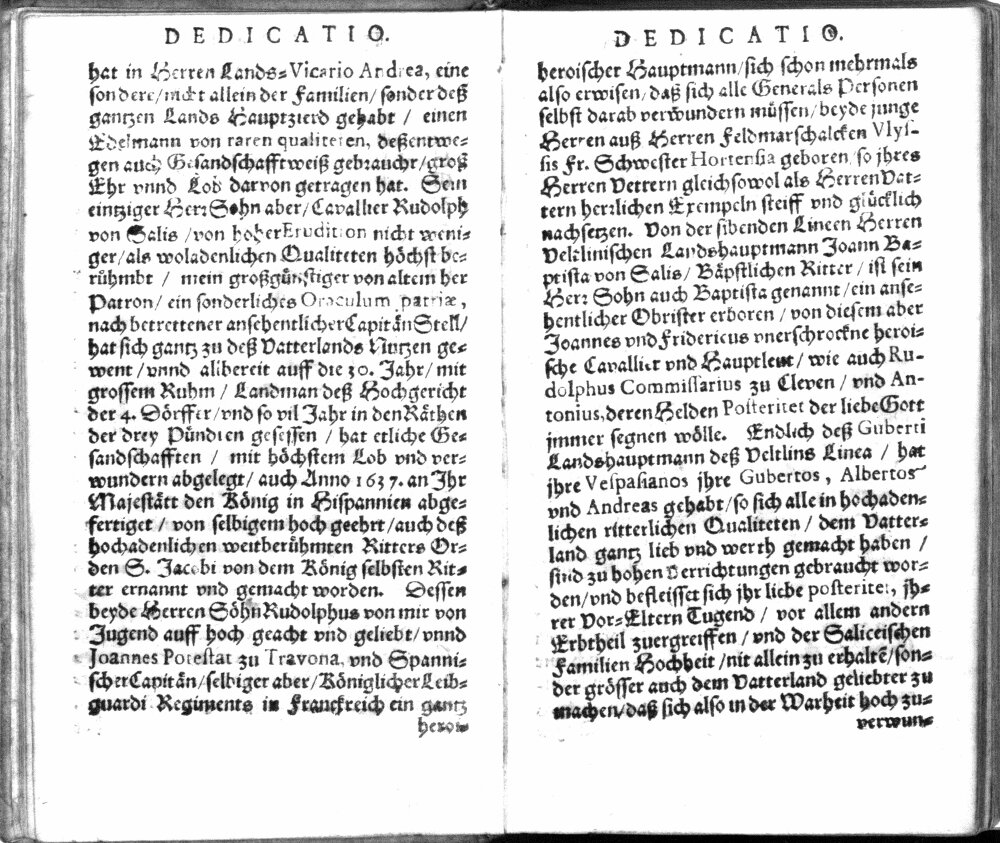 DEDICATIO.
hat in Herren Lands-Vicario Andrea, eine
sondere/nicht allein der Familien/ sonder deß
gantzen Lands Hauptzierd gehabt / einen
Edelmann von raren qualiteten, deßentwe-
gen auch Gesandschafftweiß gebraucht/groß
Ehr vnnd Lob darvon getragen hat. Sein
eintziger Herr Sohn aber/Cavallier Rudolph
von Salis /von hoher Erudition nicht weni-
ger/als woladenlichen Qualiteten höchst be-
rühmbt / mein großgünstiger von altem her
Patron/ ein sonderliches Oraculum patriæ,
nach betrettener ansehentlicher Capitän Stell/
hat sich gantz zu deß Vatterlands Nutzen ge-
went/vnnd allbereit auff die 30. Jahr/mit
grossem Ruhm / Landman deß Hochgericht
der 4. Dörffer/vnd so vil Jahr in den Räthen
der drey Pündten gesessen / hat etliche Ge-
sandschafften / mit höchstem Lob vnd ver-
wundern abgelegt/ auch Anno 1637. an Ihr
Majestätt den König in Hispannien abge-
fertiget / von selbigem hoch geehrt/auch deß
hochadenlichen weitberühmten Ritters Or-
den S. Jacobi von dem König selbsten Rit-
ter ernannt vnd gemacht worden. Dessen
beyde Herren Söhn Rudolphus von mir von
Jugend auff hoch geacht vnd geliebt/vnnd
Joannes Potestat zu Travona, vnd Spanni-
scher Capitän/selbiger aber/Königlicher Leib-
guardi Regiments in Franckreich ein gantz
heroi-
DEDICATIO.
heroischer Hauptmann/sich schon mehrmals
also erwisen/daß sich alle Generals Personen
selbst darab verwundern müssen/beyde junge
Herren auß Herren Feldmarschalcken Vlys-
sis Fr. Schwester Hortensia geboren/so jhres
Herren Vettern gleichsowol als Herren Vat-
tern herrlichen Exempeln steiff vnd glücklich
nachsetzen. Von der sibenden Lineen Herren
Veltlinischen Landshauptmann Joann Ba-
ptista von Salis/ Bäpstlichen Ritter/ist sein
Herr Sohn auch Baptista genannt/ein anse-
hentlicher Obrister erboren/von diesem aber
Joannes vnd Fridericus vnerschrockne heroi-
sche Cavallier vnd Hauptleut/ wie auch Ru-
dolphus Commissarius zu Cleven / vnd An-
tonius, deren Helden Posteritet der liebe Gott
jmmer segnen wölle. Endlich deß Guberti
Landshauptmann deß Veltlins Linea / hat
jhre Vespasianos jhre Gubertos, Albertos
vnd Andreas gehabt/so sich alle in hochaden-
lichen ritterlichen Qualiteten / dem Vatter-
land gantz lieb vnd werth gemacht haben /
sind zu hohen Verrichtungen gebraucht wor-
den/vnd befleisset sich jhr liebe posteritet, jh-
rer Vor-Eltern Tugend / vor allem andern
Erbtheil zuergreiffen / vnd der Saliceischen
Familien Hochheit/nit allein zu erhaltē/son-
der grösser auch dem Vatterland geliebter zu
machen/daß sich also in der Warheit hoch zu-
verwun-